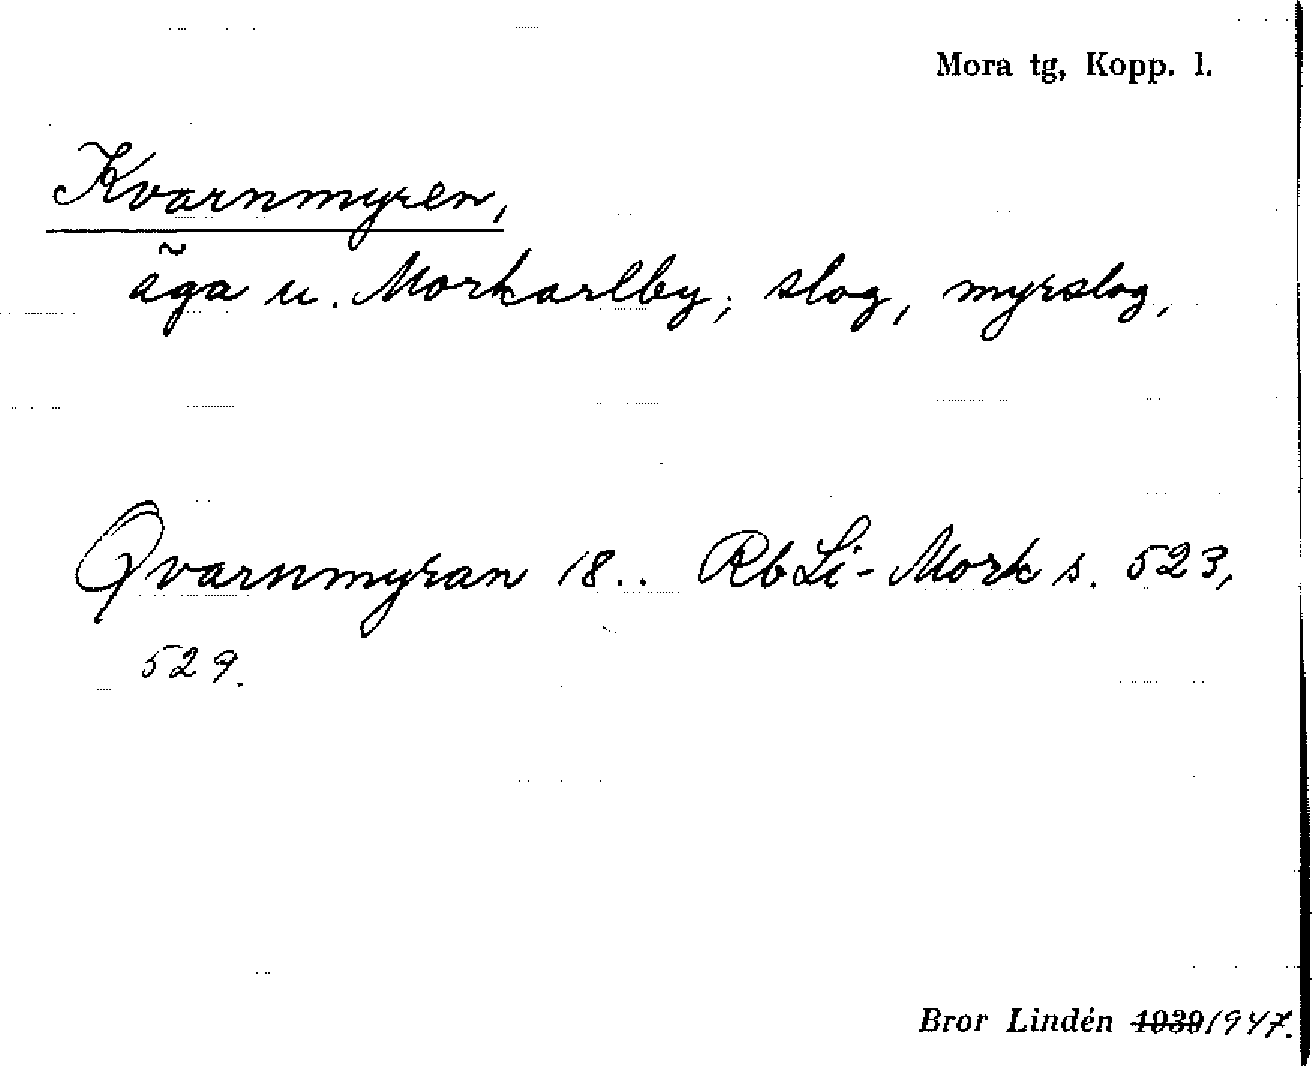 Mora tg, Kopp. l.
Kvarnmyren,
äga u. Morkarlby; slog, myrslog,
Qvarnmyran 18.. Rb Li-Mork s. 523,
529.
Bror Lindén 1939 1947.